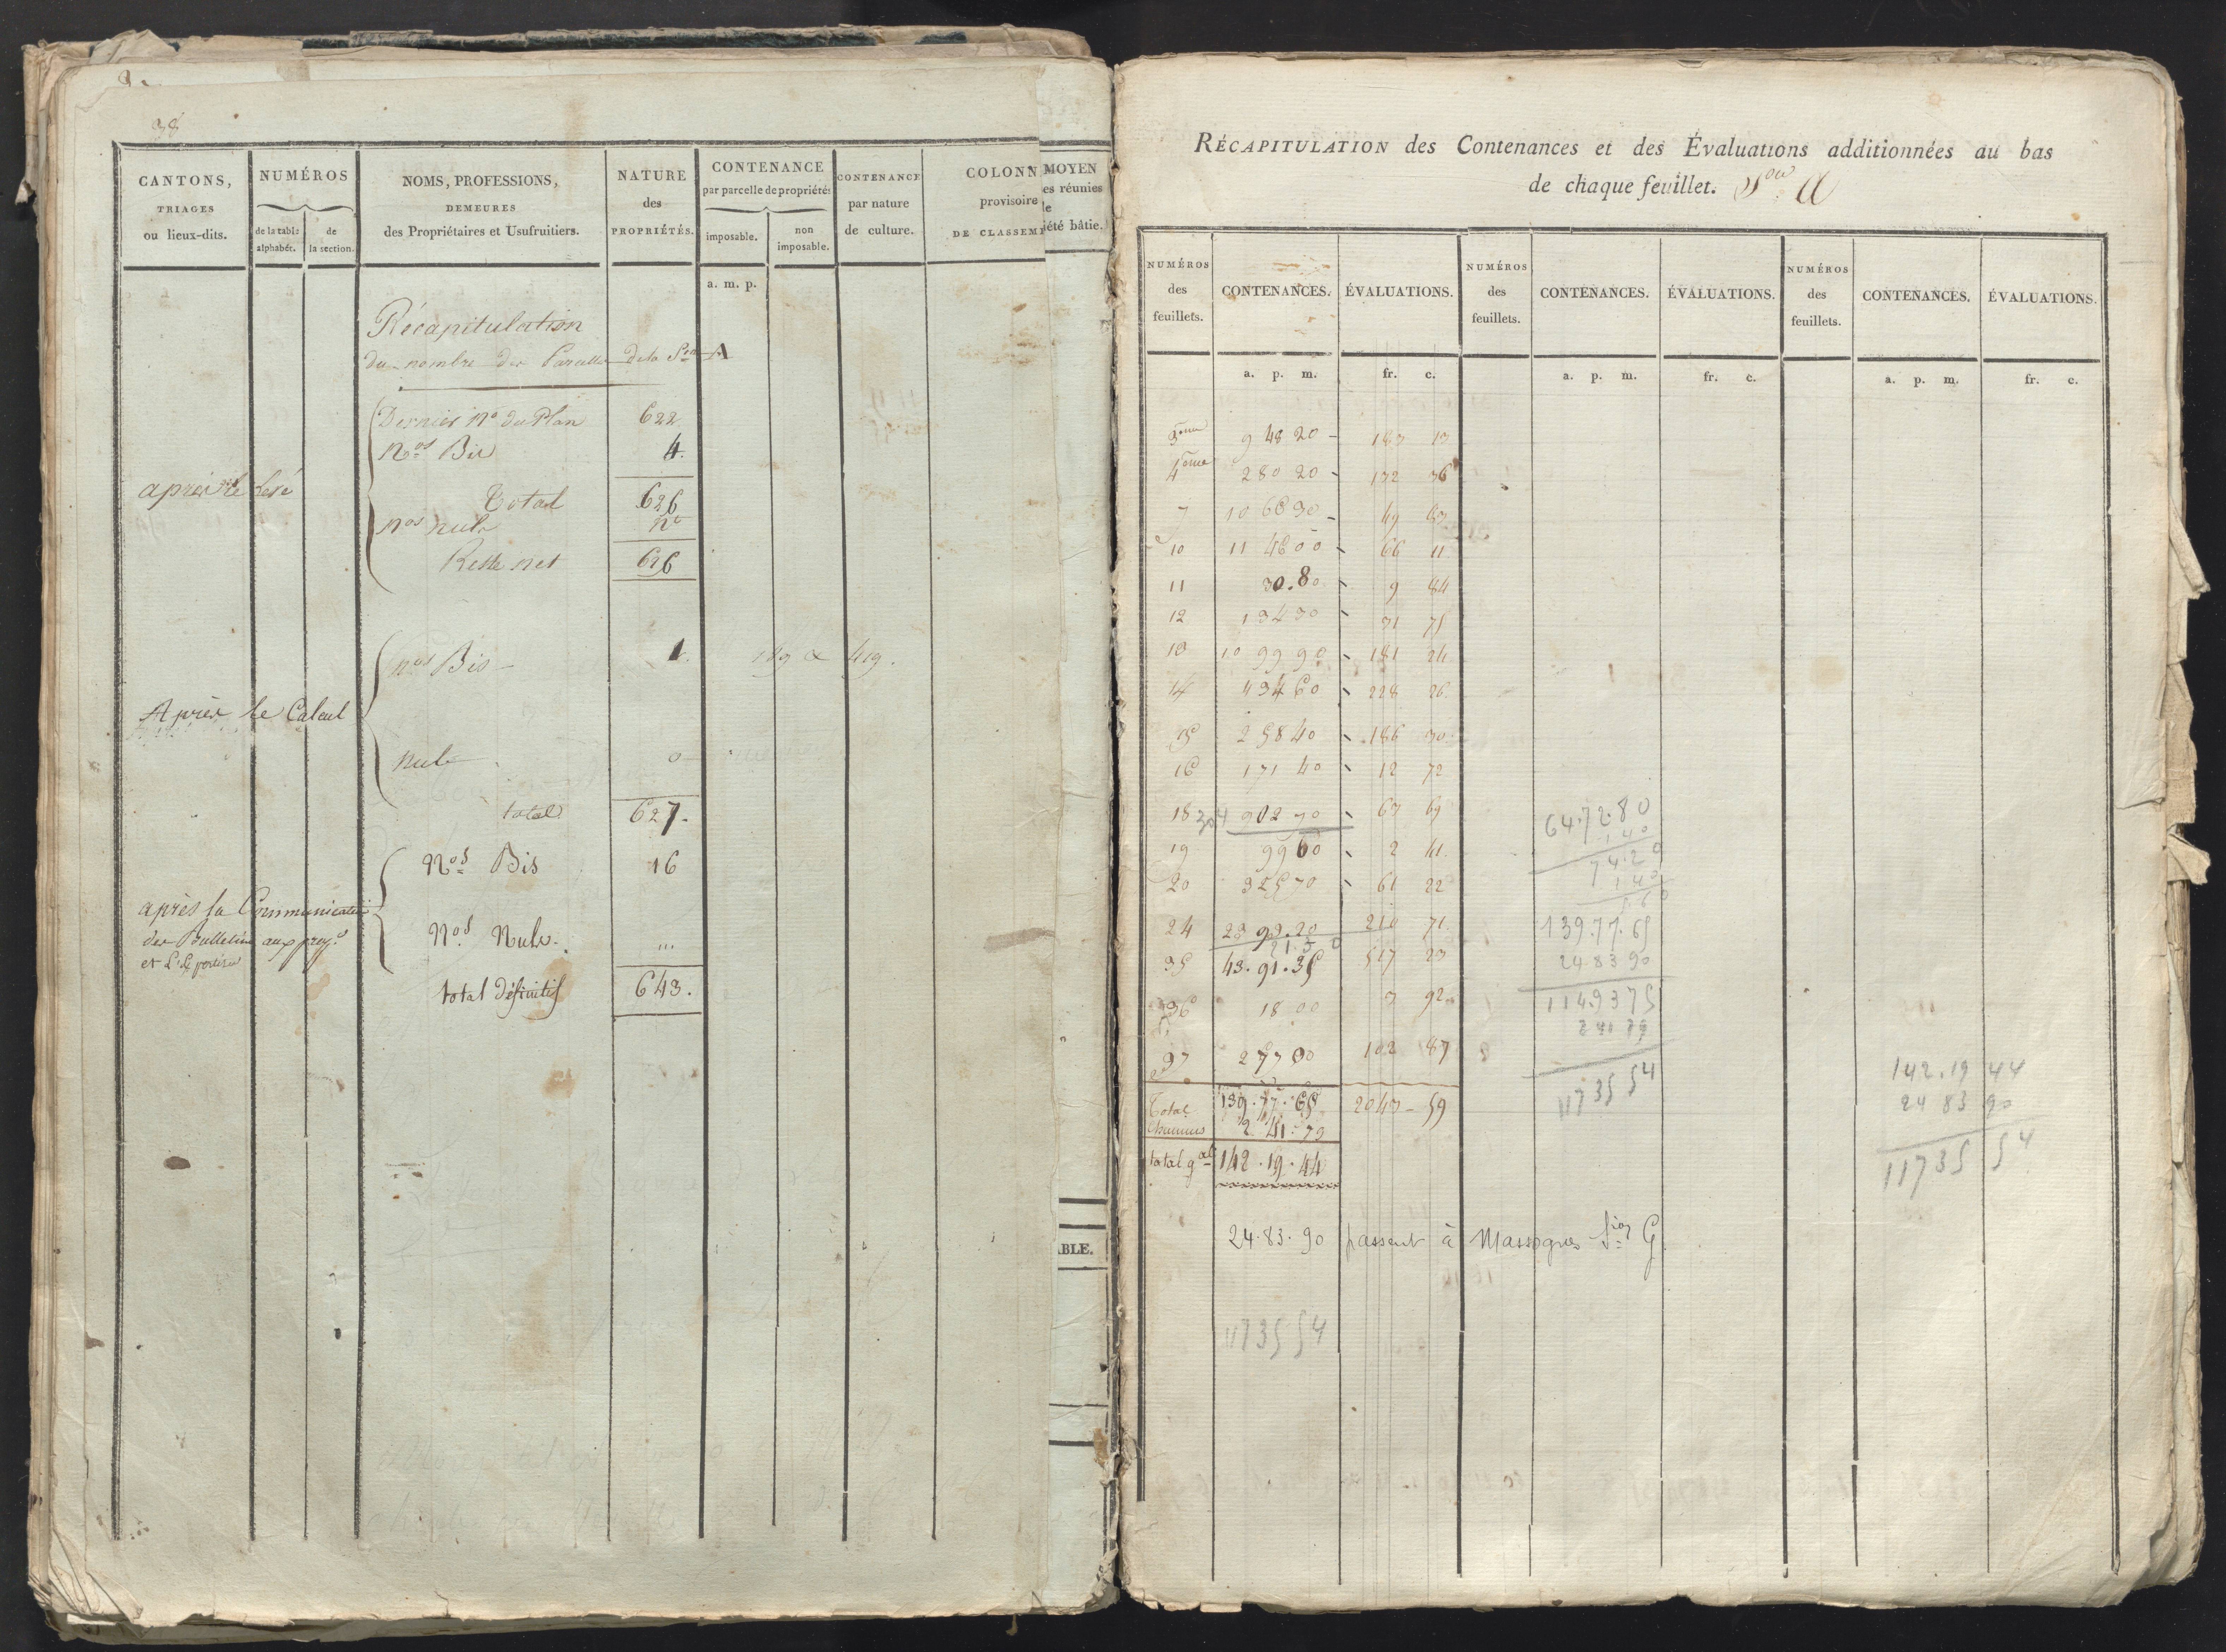 38
CANTONS,
TRIAGES
ou lieux-dits.
NUMÉROS
de la table alphabét.
de la section.
NOMS, PROFESSIONS,
DEMEURES
des Propriétaires et Usufruitiers.
NATURE
des
PROPRIÉTÉS.
CONTENANCE
par parcelle de propriétés
imposable.
non imposable.
CONTENANCE
par nature
de culture.
COLONN
provisoire
DE CLASSEM
MOYEN
es réunies
iété bâtie.
a. m. p.
Récapitulation
du nombre des Parcelles de la Son A
Dernier No du Plan 622
Nos Bis 4.
après le Levé
Total 626
nos nuls no
Reste net 626
nos Bis 1. 189 & 419.
Après le Calcul
nuls 0
total 627.
Nos Bis 16
après la Communication
des Bulletins aux propres
et
Nos Nuls. ...
total définitif 643.
ABLE.
RÉCAPITULATION des Contenances et des Évaluations additionnées au bas
de chaque feuillet. Son A
NUMÉROS des feuillets. CONTENANCES. ÉVALUATIONS. NUMÉROS des feuillets. CONTENANCES. ÉVALUATIONS. NUMÉROS des feuillets. CONTENANCES. ÉVALUATIONS.
a. p. m. fr. c. a. p. m. fr. c. a. p. m. fr. c.
3eme 9 48 20 187 13
4eme 280 20 172 36
7 10 6890 49 83
10 11 4800 66 11
11 30.80 9 84
12 13430 31 75
13 10 99 90 181 24
14 43460 228 26
15 25840 186 30
16 171 40 12 72
18 902 70 67 69
64.72.80
1 40
19 9960 2 41.
74.20
1 40
20 32570 61 22
24 23 93.20 210 71
21.5 0
139.77.65
35 43.91.35 517 23
24.83 90
36 18 00 3 92
114.93 75
2 41 79
37 27700 102 87
117 35 54
Total 139.77.65 2043-59
Chemins 2.41.79
total gal 142.19.44
142.19 44
24 83 90
11735 54
24.83.90 passent à Massogues Sion G.
11735 54